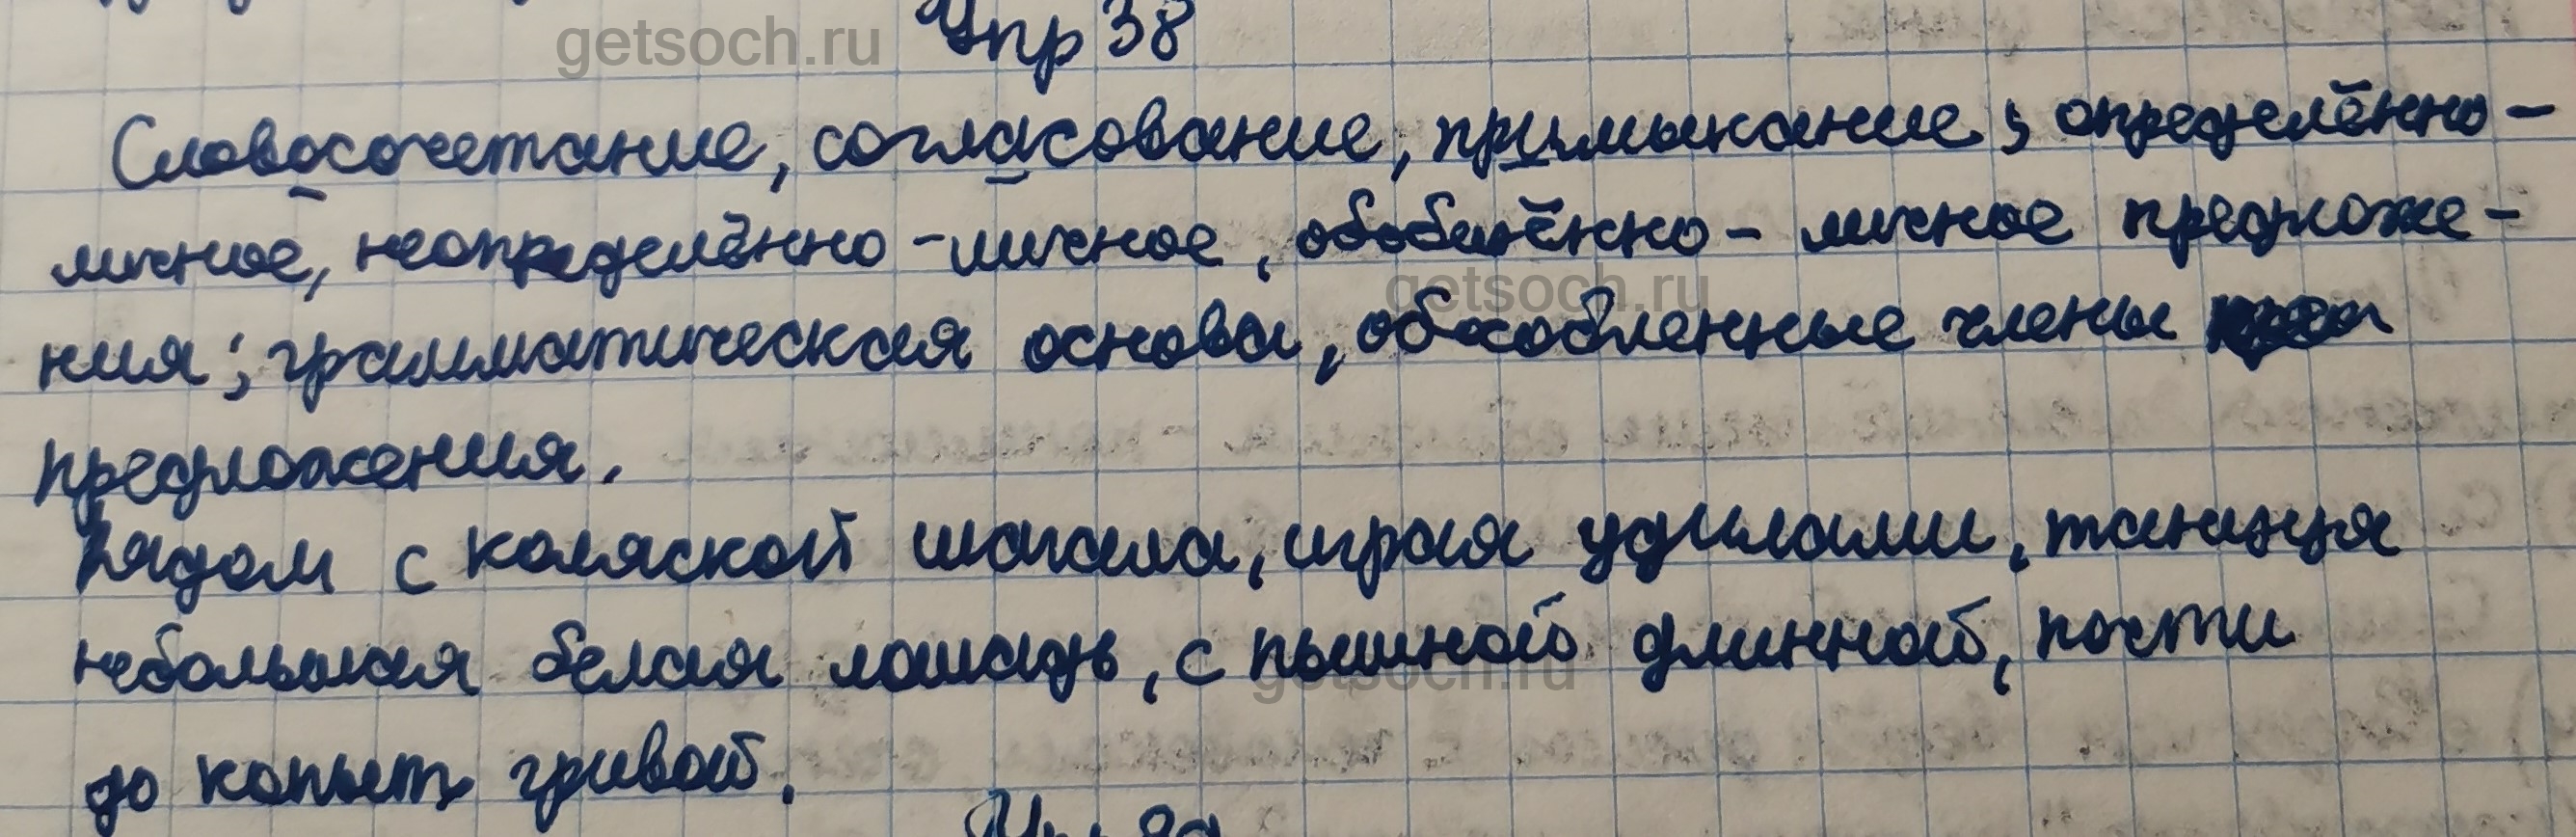 getsoch.ru
Упр 38
Словосочетание, согласование, примыкание; определённо-
личное, неопределённо-личное, обобщённо-личное предложе-
getsoch.ru
ния; грамматическая основа, обособленные члены
предложения.
Рядом с коляской шагала, играя удилами, танцуя
небольшая белая лошадь, с пышной длинной, почти
getsoch.ru
до копыт гривой.